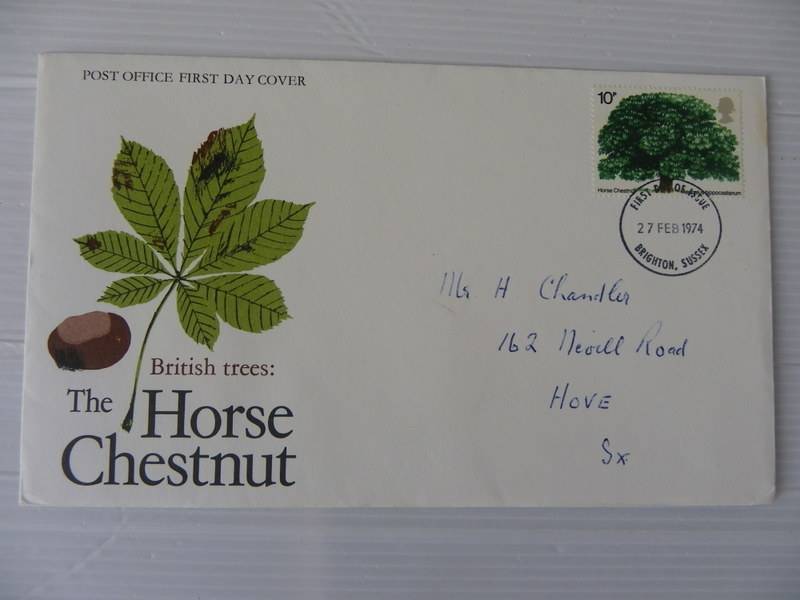 POST OFFICE FIRST DAY COVER
10P
Horse Chestnut
FIRST DAY OF ISSUE
27 FEB 1974
BRIGHTON, SUSSEX
Mr H Chandler
162 Nevill Road
HOVE
Sx
British trees:
The Horse
Chestnut